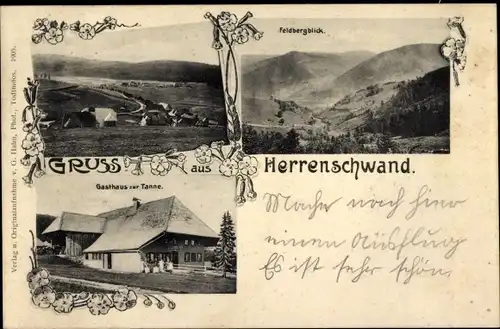 Feldbergblick.
GRUSS aus Herrenschwand.
Gasthaus zur Tanne.
Mache noch hier
einen Ausflug
Es ist sehr schön.
Verlag u. Originalaufnahme v. G. Hahn, Phot., Todtmoos. 1905.